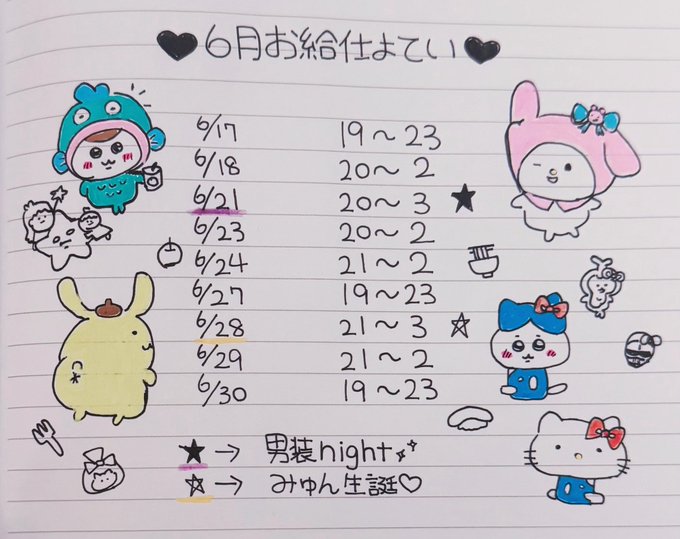 ♥6月お給仕よてい♥
6/17 19〜23
6/18 20〜2
6/21 20〜3 ★
6/23 20〜2
6/24 21〜2
6/27 19〜23
6/28 21〜3 ☆
6/29 21〜2
6/30 19〜23
★→ 男装night
☆→ みゅん生誕♡